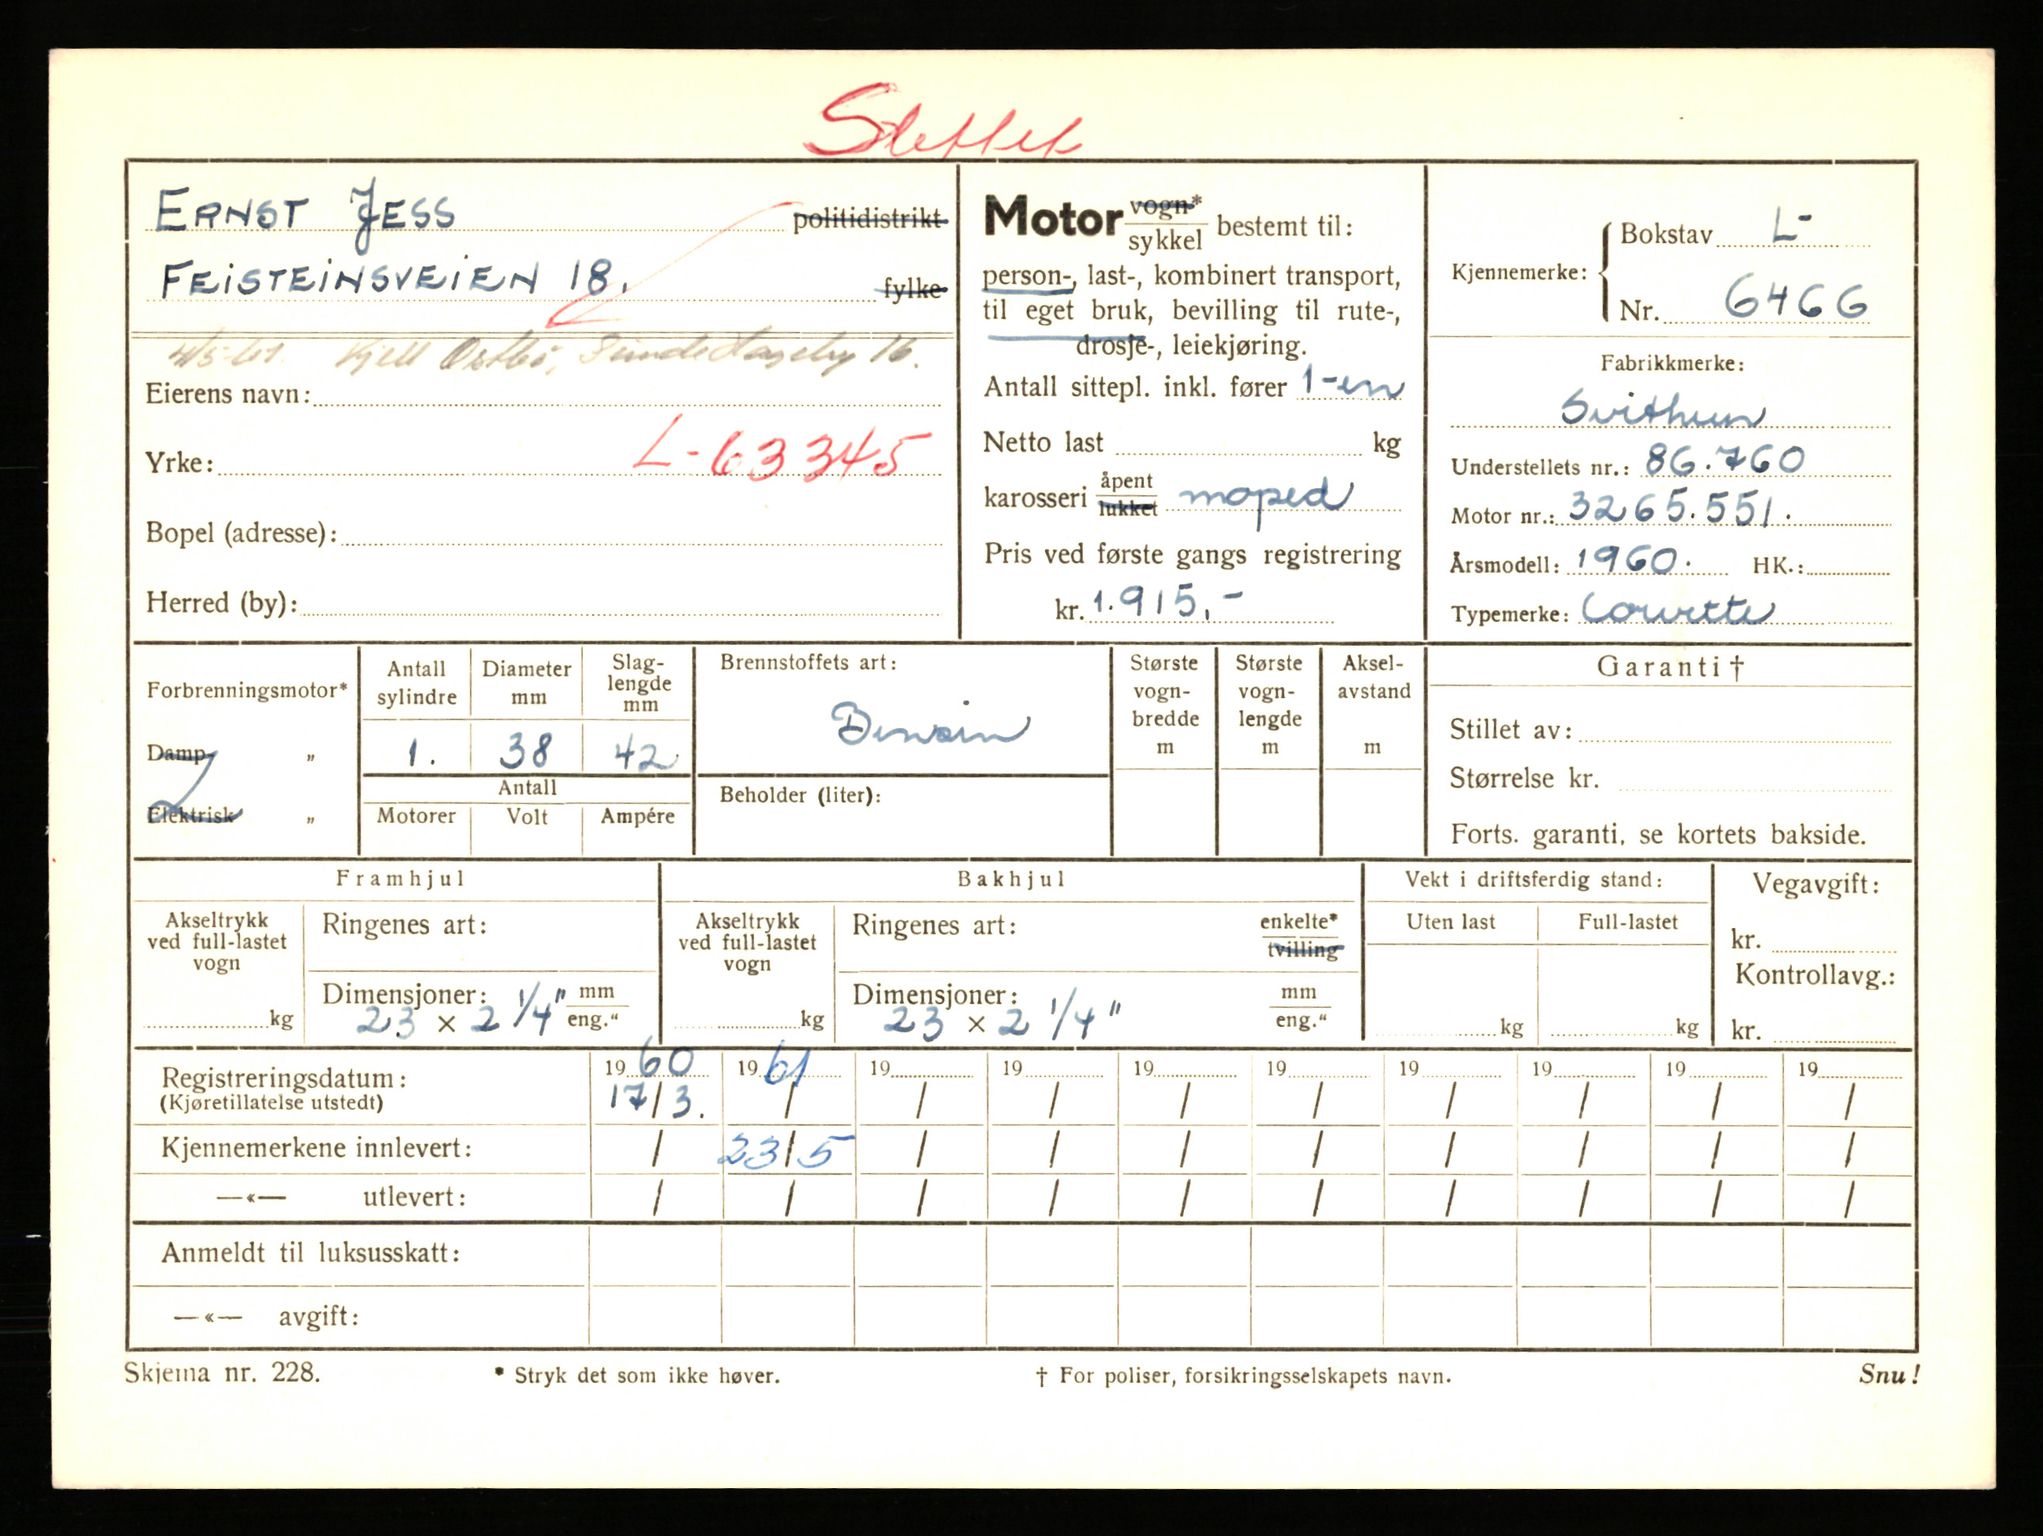 Slettet
ERNST JESS politidistrikt
FEISTEINSVEIEN 18. fylke
Kjell Ostbø, 16.
Eierens navn:
Yrke: L-63345
Bopel (adresse):
Herred (by):
Motor vogn* / sykkel bestemt til:
person-, last-, kombinert transport,
til eget bruk, bevilling til rute-,
drosje-, leiekjøring.
Antall sittepl. inkl. fører 1-en
Netto last kg
karosseri åpent / lukket moped
Pris ved første gangs registrering
kr. 1.915,-
Kjennemerke: Bokstav L-
Nr. 6466
Fabrikkmerke:
Svithun
Understellets nr.: 86.760
Motor nr.: 3265.551.
Årsmodell: 1960. HK.:
Typemerke: Corvette
Forbrenningsmotor*
Damp „
Elektrisk „
Antall sylindre 1.
Diameter mm 38
Slag-lengde mm 42
Antall
Motorer Volt Ampére
Brennstoffets art:
Bensin
Beholder (liter):
Største vogn-bredde m
Største vogn-lengde m
Aksel-avstand m
Garanti †
Stillet av:
Størrelse kr.
Forts. garanti, se kortets bakside.
Framhjul
Akseltrykk ved full-lastet vogn
kg
Ringenes art:
Dimensjoner: mm
23 x 2 1/4" eng."
Bakhjul
Akseltrykk ved full-lastet vogn
kg
Ringenes art: enkelte* / tvilling
Dimensjoner: mm
23 x 2 1/4" eng."
Vekt i driftsferdig stand:
Uten last Full-lastet
kg kg
Vegavgift:
kr.
Kontrollavg.:
kr.
Registreringsdatum: 1960 1961 19 19 19 19 19 19 19 19
(Kjøretillatelse utstedt) 17/3. / / / / / / / / /
Kjennemerkene innlevert: / 23/5 / / / / / / / /
—«— utlevert: / / / / / / / / / /
Anmeldt til luksusskatt:
—«— avgift:
Skjema nr. 228. * Stryk det som ikke høver. † For poliser, forsikringsselskapets navn. Snu!